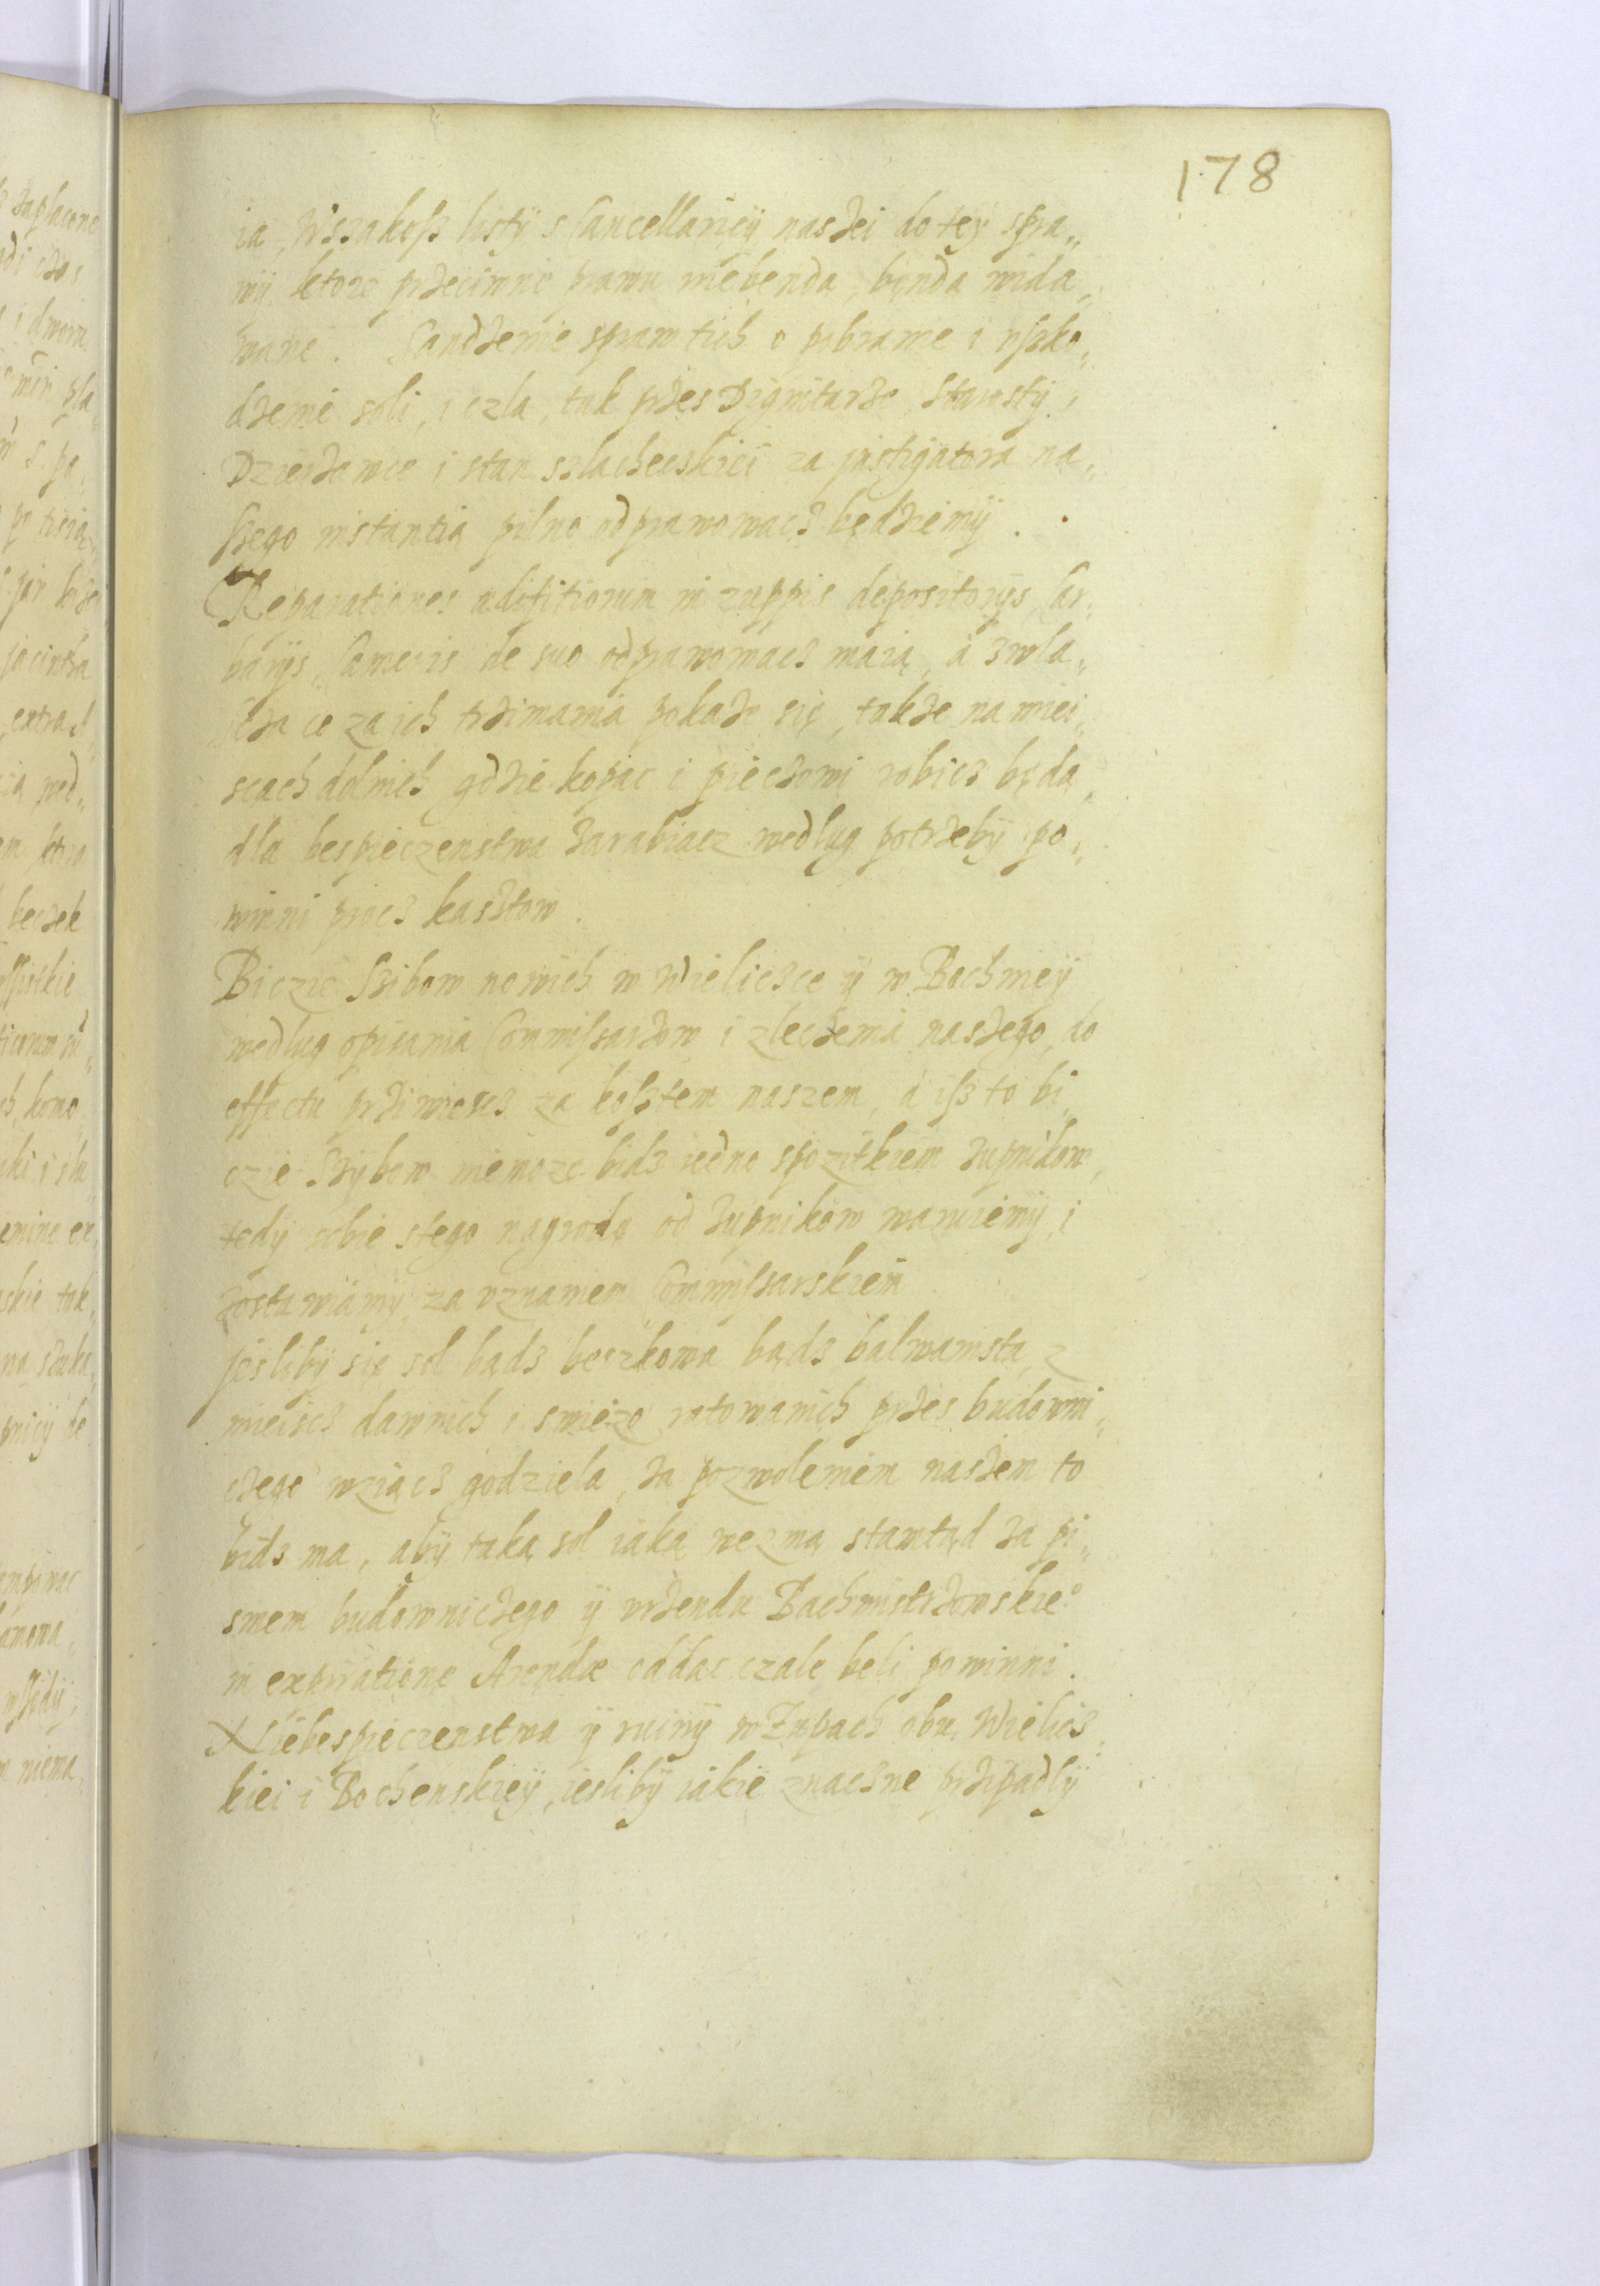 178
ia, Wszakoſz listÿ s Cancellarieÿ naszei do teÿ spra„
wÿ ktore przeciwne prawu niebenda, bęnda wida„
wane. Sandzenie spraw tich o pobranie i vſzko„
dzenie soli, i czla, tak przes Dignitarze, Starostÿ,
Dzierzewce i stan szlacheczkiei za instigatora na„
ſzego instantią pilno odprawowacz będziemÿ.
Reparationes ædifitiorum in zuppis depositorÿs, Car„
barÿs, Cameris de suo odprawowacz maią, a zwla„
ſcza ce za ich trzimania pokaze się, takze na miei„
scach dolnich gdzie kopac i pieczowi robicz będą,
dla bespieczenstwa zarabiacz wedlug potrzebÿ po„
winni procz kasztow.
Biczie Szibow nowich w Wieliczce ÿ w Bochnieÿ
wedlug opisania Commiſsarzow i zleczenia naszego, do
effectu prziwiescz za koſztem naszem, a iſz to bi„
czie Szÿbow niemoze bidz iedno spozitkiem zupnikow,
tedÿ sobie stego nagrodę od zupnikow waruiemÿ, i
zostawiamÿ za vznaniem Commiſsarskiem
Jesliby się sol bądz beczkowa bądz balwanista z
mieiscz dawnich i swiezo ratowanich przes budowni„
czego wziącz godziela, za pozwoleniem naszem to
bidz ma, abÿ taką sol iaką wezmą stamtąd za pi„
smem budowniczego ÿ vrzendu Bachmistrzowskieº
in expiratione Arendæ oddac czale beli powinni.
Niebespieczenstwa ÿ ruinÿ w Zupach obu Wielicz„
kiei i Bochenskieÿ, iesliby iakie znaczne przipadlÿ